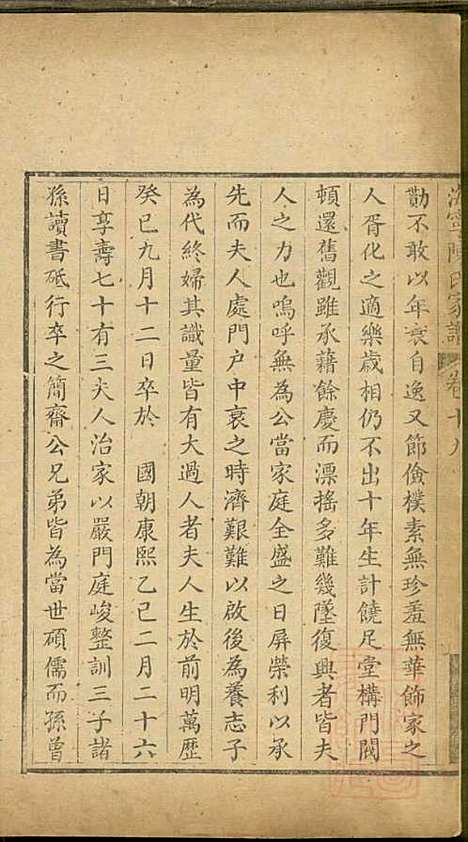 海寧陳氏家譜 卷十八
勩不敢以年衰自逸又節儉樸素無珍羞無華飾家之
人胥化之適樂歲相仍不出十年生計饒足堂構門閥
頓還舊觀雖承藉餘慶而漂搖多難幾墜復興者皆夫
人之力也嗚呼無為公當家庭全盛之日屏榮利以承
先而夫人處門户中衰之時濟艱難以啟後為養志子
為代終婦其識量皆有大過人者夫人生於前明萬歷
癸巳九月十二日卒於 國朝康熙乙巳二月二十六
日享壽七十有三夫人治家以嚴門庭峻整訓三子諸
孫讀書砥行卒之簡齋公兄弟皆為當世碩儒而孫曾